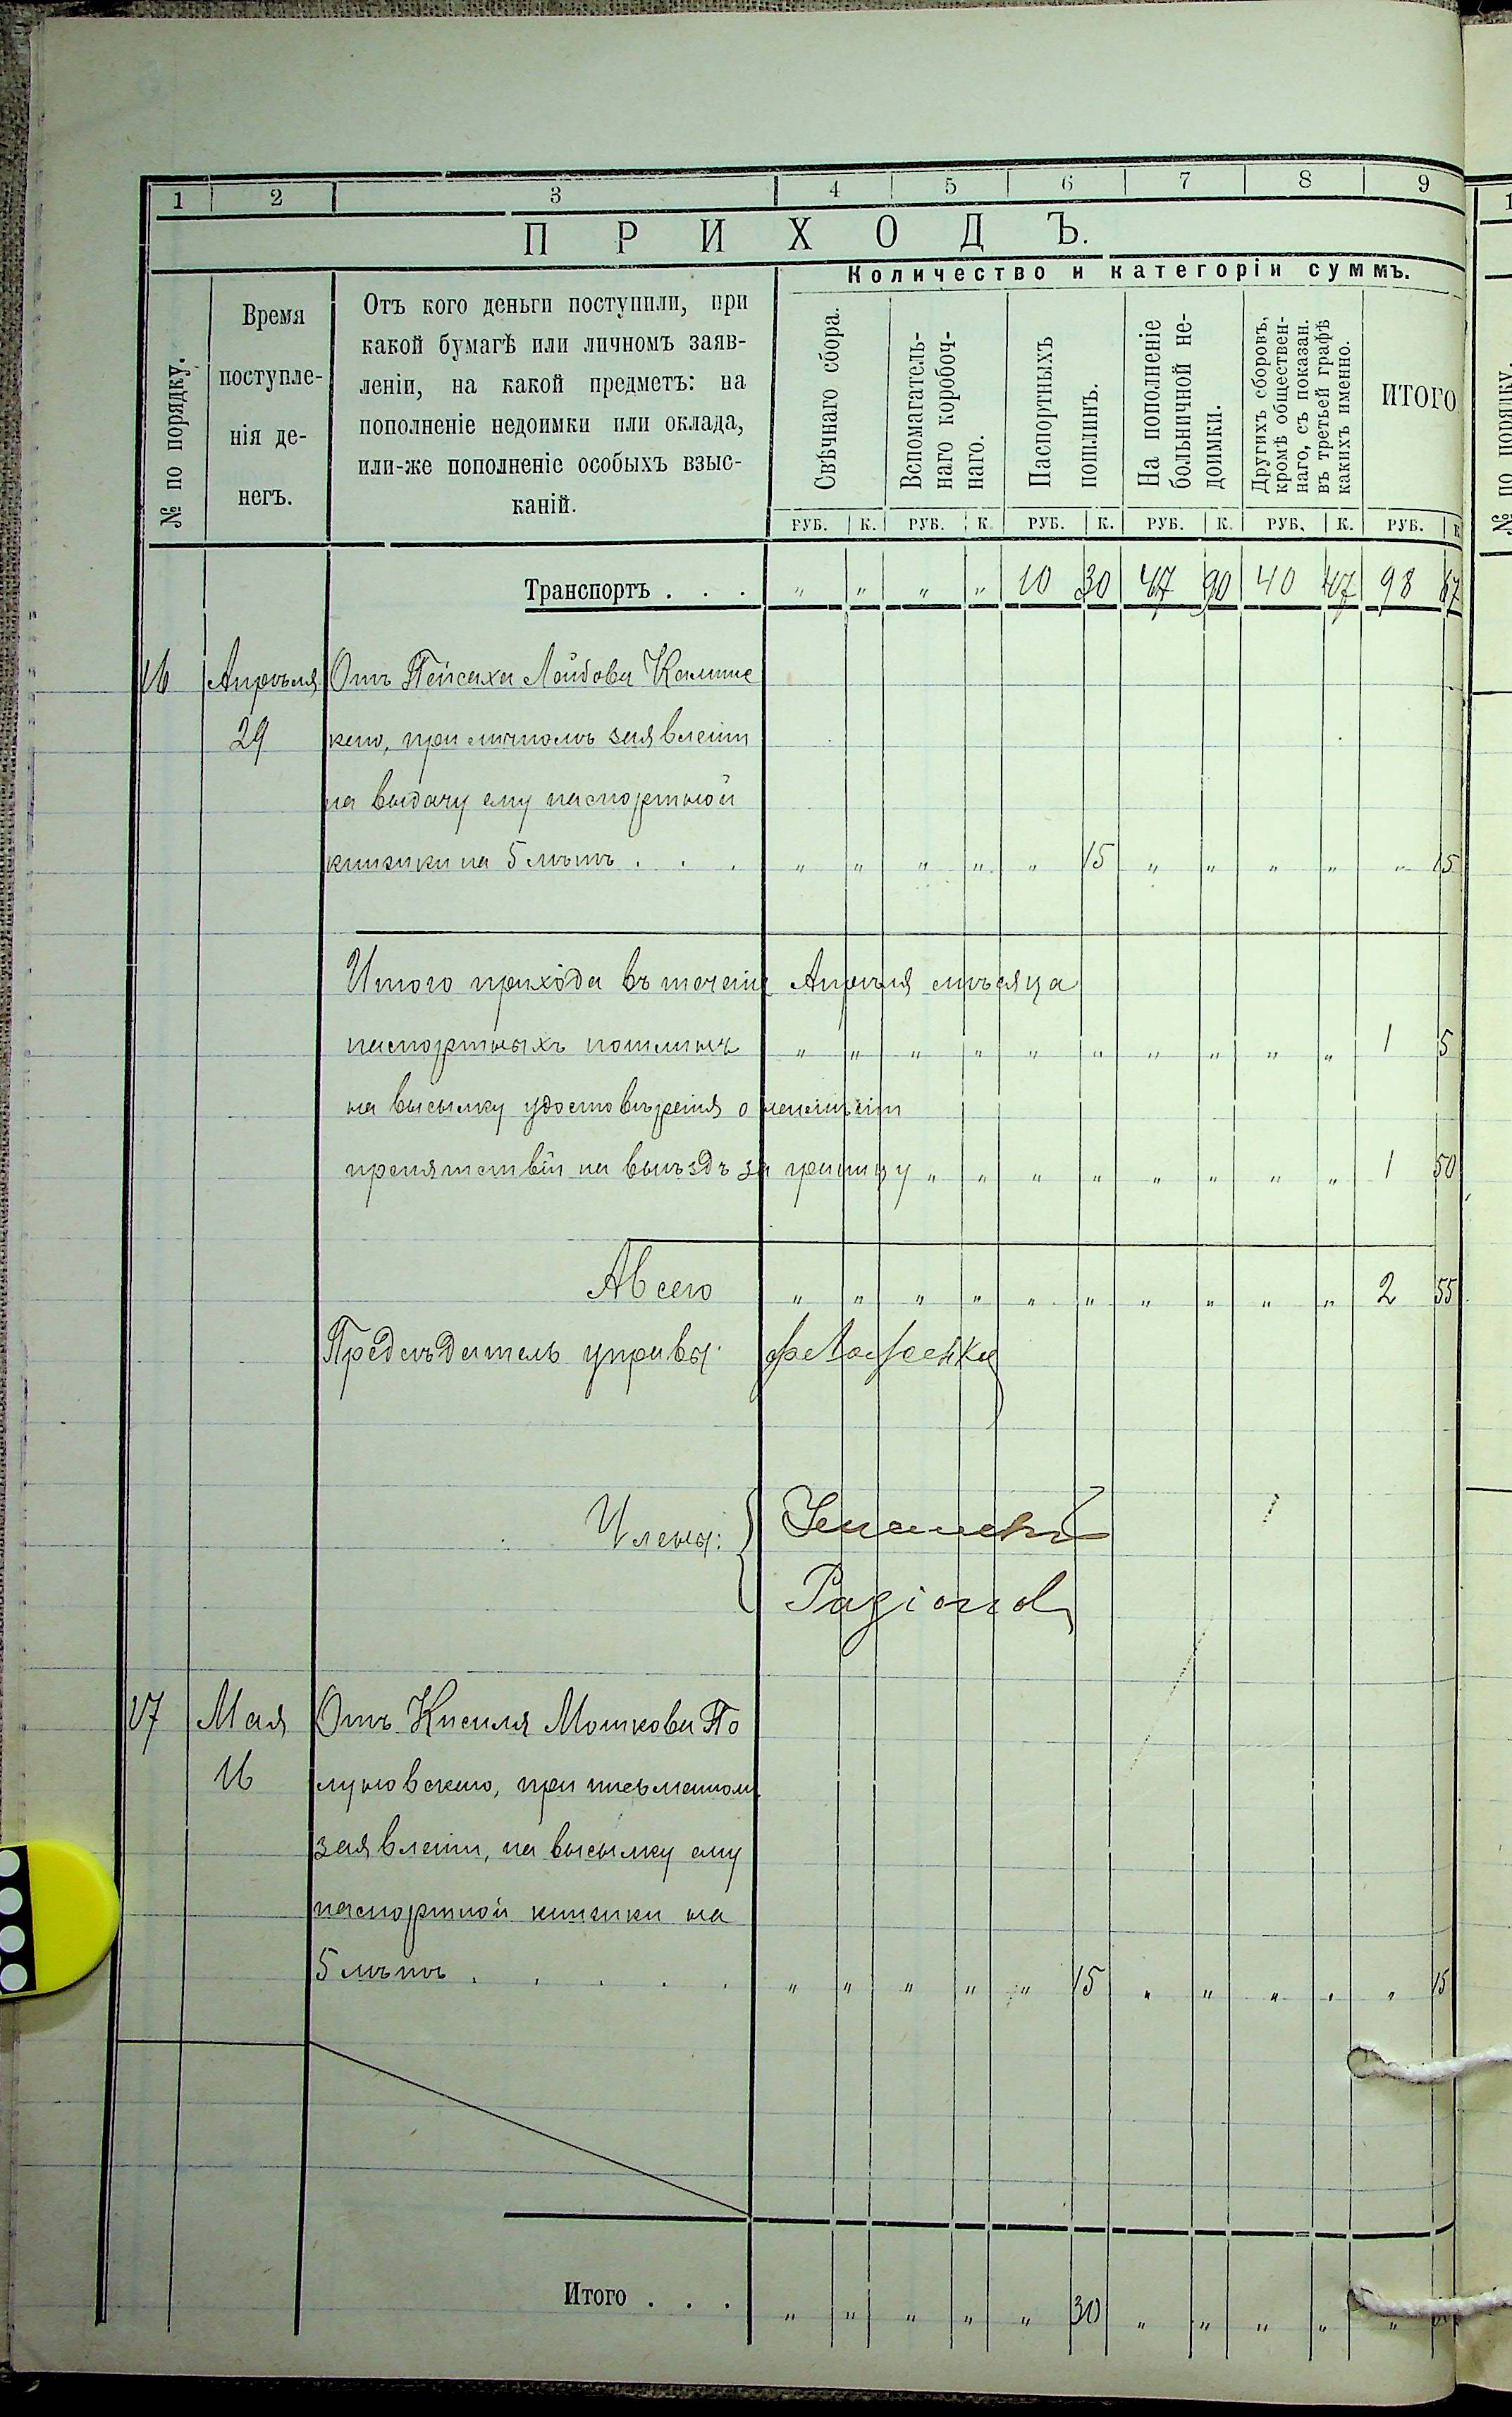 1 2 3 4 5 6 7 8 9
ПРИХОДЪ.
Количество и категоріи суммъ.
№ по порядку.
Время
поступле-
нія де-
негъ.
Отъ кого деньги поступили, при
какой бумагѣ или личномъ заяв-
леніи, на какой предметъ: на
пополненіе недоимки или оклада,
или-же пополненіе особыхъ взыс-
каній.
Свѣчнаго сбора.
Вспомагатель-
наго коробоч-
наго.
Паспортныхъ
пошлинъ.
На пополненіе
больничной не-
доимки.
Другихъ сборовъ,
кромѣ обществен-
наго, съ показан.
въ третьей графѣ
какихъ именно.
ИТОГО
РУБ. К. РУБ. К. РУБ. К. РУБ. К. РУБ. К. РУБ. К
Транспортъ . . . " " " " 10 30 47 90 40 47 98 67
16 Апрѣля Отъ Пейсаха Лейбова
29 при личномъ заявленіи
на выдачу ему паспортной
книжки на 5 лѣтъ . . . " " " " " 15 " " " " " 15
Итого прихода въ теченіе Апрѣля мѣсяца
паспортныхъ пошлинъ " " " " " " " " " " 1 5
на высылку удостовѣренія о неимѣніи
препятствій на выѣздъ за границу " " " " " " " " 1 50
А всего " " " " " " " " " " 2 55
Предсѣдатель управы:
Члены:
17 Мая Отъ Кисиля Мошкова По
16 луновскаго, при письменномъ
заявленіи, на высылку ему
паспортной книжки на
5 лѣтъ . . . . . " " " " " 15 " " " " " 15
Итого . . . " " " " " 30 " " " " "
№ по порядку.